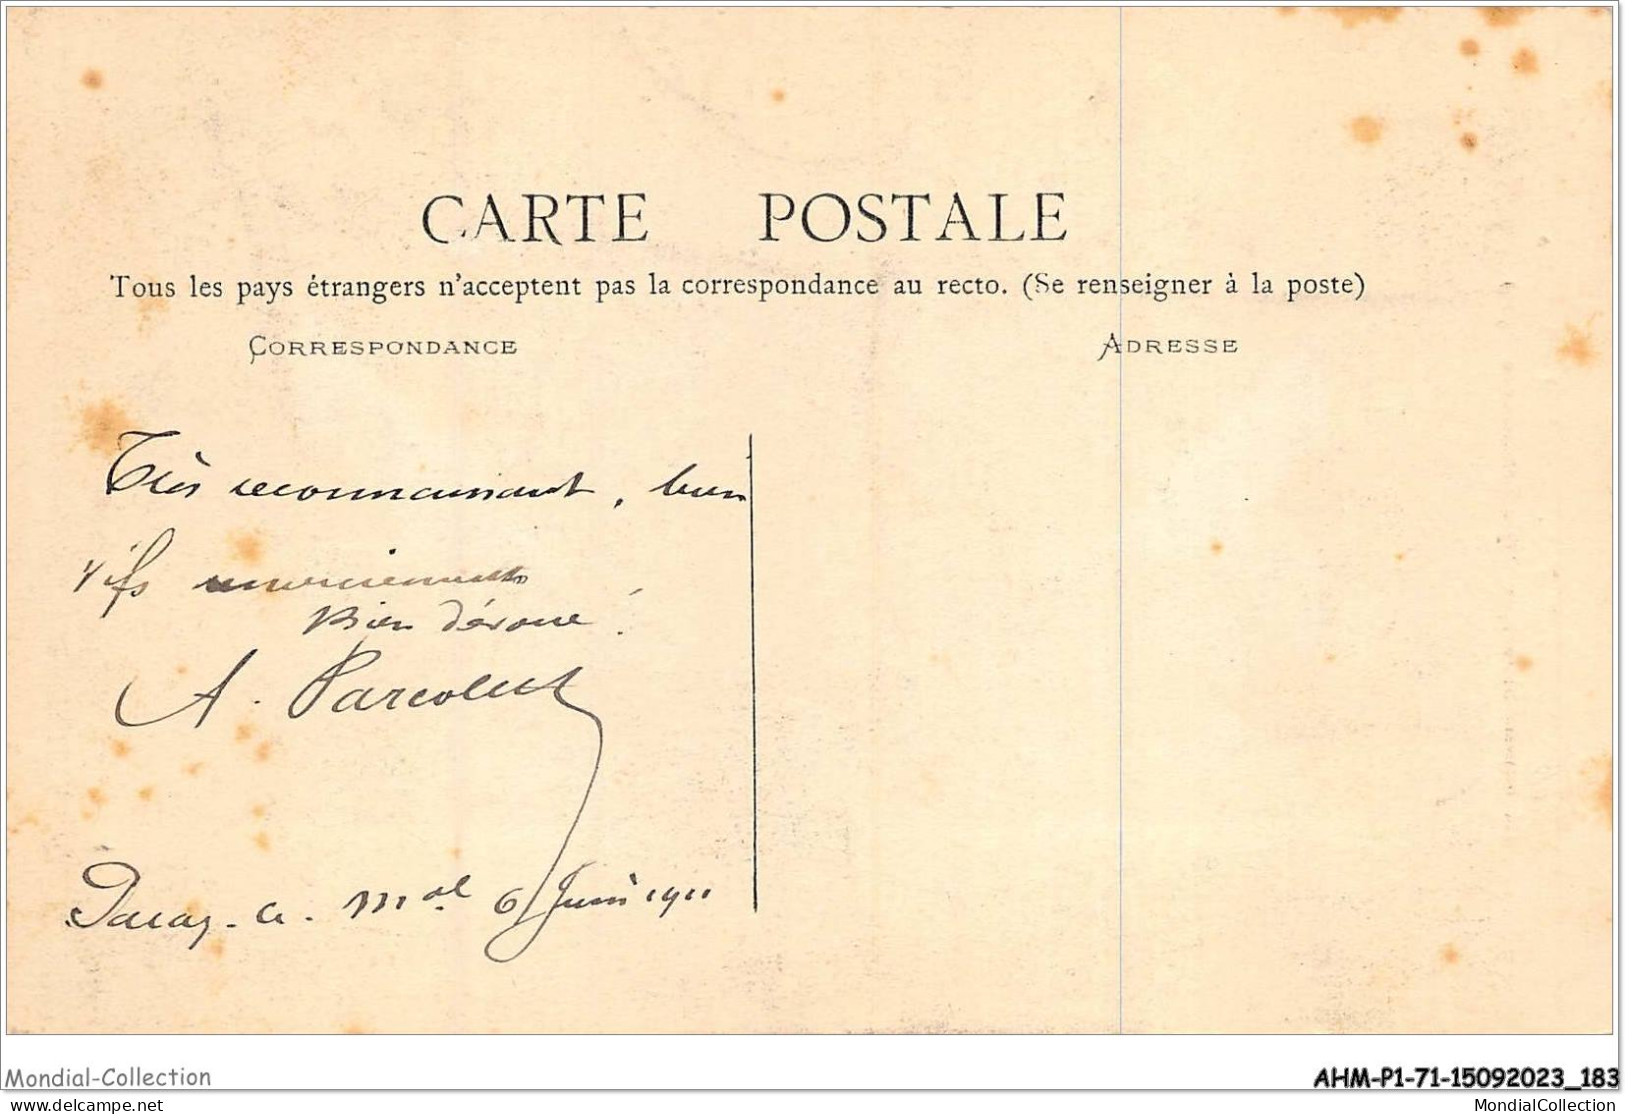 CARTE POSTALE
Tous les pays étrangers n'acceptent pas la correspondance au recto. (Se renseigner à la poste)
CORRESPONDANCE
ADRESSE
Très reconnaissant, bien
vifs remerciements
Bien dévoué!
A.
Paray-le-Mal 6 Juin 1911
Mondial-Collection
AHM-P1-71-15092023_183
www.delcampe.net
MondialCollection